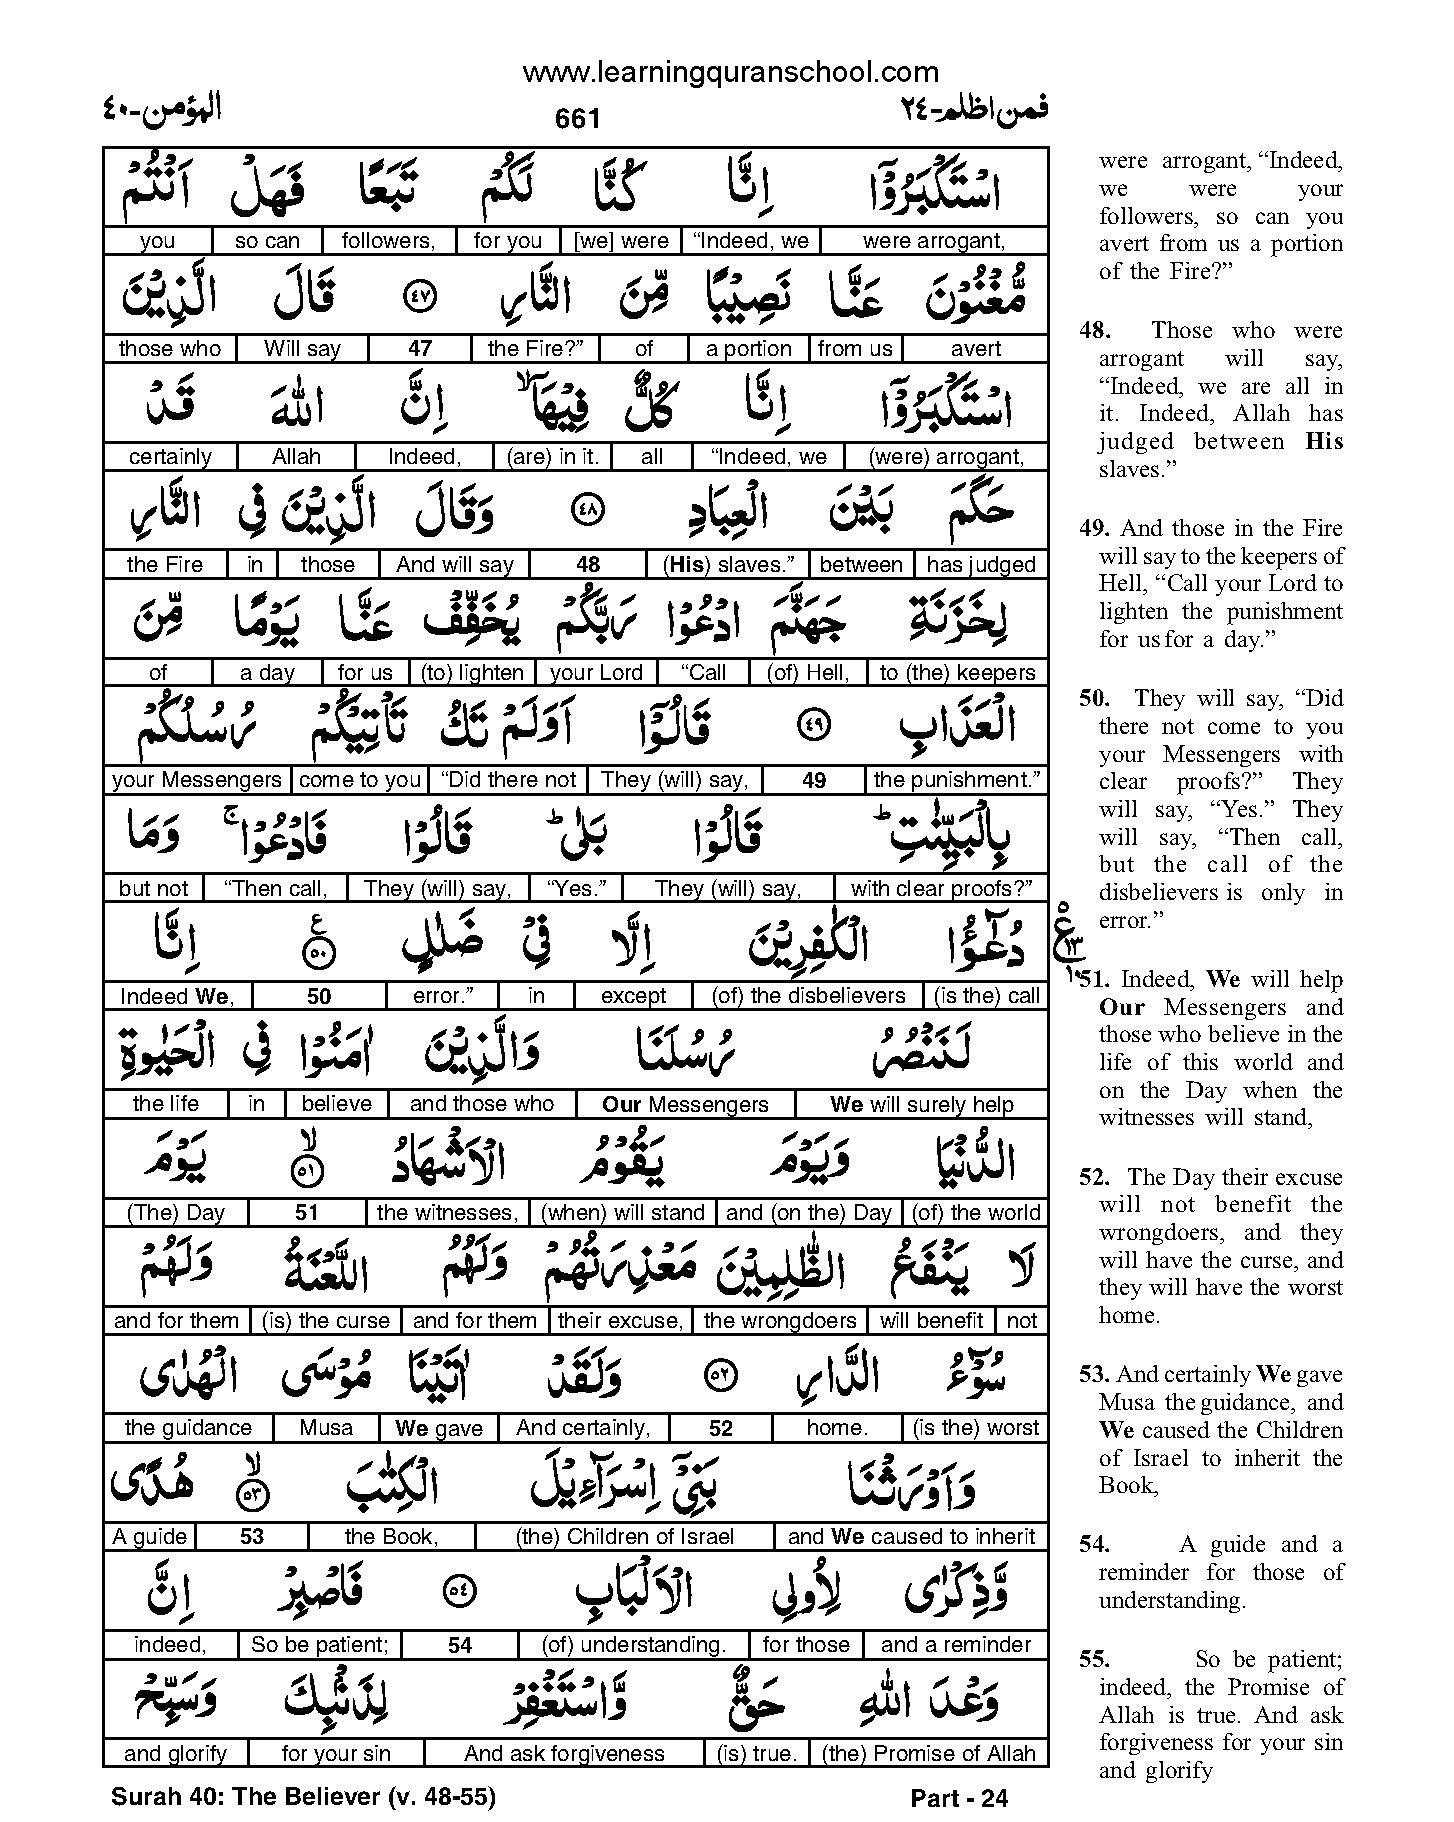 www.learningquranschool.com
المؤمن-٤٠
661
فمن اظلم-٢٤
اسْتَكْبَرُوْٓا اِنَّا كُنَّا لَكُمْ تَبَعًا فَهَلْ اَنْتُمْ
you so can followers, for you [we] were “Indeed, we were arrogant,
مُّغْنُوْنَ عَنَّا نَصِيْبًا مِّنَ النَّارِ ٤٧ قَالَ الَّذِيْنَ
those who Will say 47 the Fire?” of a portion from us avert
اسْتَكْبَرُوْٓا اِنَّا كُلٌّ فِيْهَآ ۙ اِنَّ اللّٰهَ قَدْ
certainly Allah Indeed, (are) in it. all “Indeed, we (were) arrogant,
حَكَمَ بَيْنَ الْعِبَادِ ٤٨ وَقَالَ الَّذِيْنَ فِي النَّارِ
the Fire in those And will say 48 (His) slaves.” between has judged
لِخَزَنَةِ جَهَنَّمَ ادْعُوْا رَبَّكُمْ يُخَفِّفْ عَنَّا يَوْمًا مِّنَ
of a day for us (to) lighten your Lord “Call (of) Hell, to (the) keepers
الْعَذَابِ ٤٩ قَالُوْٓا اَوَلَمْ تَكُ تَاْتِيْكُمْ رُسُلُكُمْ
your Messengers come to you “Did there not They (will) say, 49 the punishment.”
بِالْبَيِّنٰتِ ؕ قَالُوْا بَلٰى ؕ قَالُوْا فَادْعُوْا ۚ وَمَا
but not “Then call, They (will) say, “Yes.” They (will) say, with clear proofs?”
دُعٰٓؤُا الْكٰفِرِيْنَ اِلَّا فِيْ ضَلٰلٍ ٥٠ ع اِنَّا
Indeed We, 50 error.” in except (of) the disbelievers (is the) call
لَنَنْصُرُ رُسُلَنَا وَالَّذِيْنَ اٰمَنُوْا فِي الْحَيٰوةِ
the life in believe and those who Our Messengers We will surely help
الدُّنْيَا وَيَوْمَ يَقُوْمُ الْاَشْهَادُ ٥١ ۙ يَوْمَ
(The) Day 51 the witnesses, (when) will stand and (on the) Day (of) the world
لَا يَنْفَعُ الظّٰلِمِيْنَ مَعْذِرَتُهُمْ وَلَهُمُ اللَّعْنَةُ وَلَهُمْ
and for them (is) the curse and for them their excuse, the wrongdoers will benefit not
سُوْٓءُ الدَّارِ ٥٢ وَلَقَدْ اٰتَيْنَا مُوْسَى الْهُدٰى
the guidance Musa We gave And certainly, 52 home. (is the) worst
وَاَوْرَثْنَا بَنِيْٓ اِسْرَآءِيْلَ الْكِتٰبَ ٥٣ ۙ هُدًى
A guide 53 the Book, (the) Children of Israel and We caused to inherit
وَّذِكْرٰى لِاُولِي الْاَلْبَابِ ٥٤ فَاصْبِرْ اِنَّ
indeed, So be patient; 54 (of) understanding. for those and a reminder
وَعْدَ اللّٰهِ حَقٌّ وَّاسْتَغْفِرْ لِذَنْۢبِكَ وَسَبِّحْ
and glorify for your sin And ask forgiveness (is) true. (the) Promise of Allah
were arrogant, “Indeed,
we were your
followers, so can you
avert from us a portion
of the Fire?”
48. Those who were
arrogant will say,
“Indeed, we are all in
it. Indeed, Allah has
judged between His
slaves.”
49. And those in the Fire
will say to the keepers of
Hell, “Call your Lord to
lighten the punishment
for us for a day.”
50. They will say, “Did
there not come to you
your Messengers with
clear proofs?” They
will say, “Yes.” They
will say, “Then call,
but the call of the
disbelievers is only in
error.”
٥
ع
١٣
١٠
51. Indeed, We will help
Our Messengers and
those who believe in the
life of this world and
on the Day when the
witnesses will stand,
52. The Day their excuse
will not benefit the
wrongdoers, and they
will have the curse, and
they will have the worst
home.
53. And certainly We gave
Musa the guidance, and
We caused the Children
of Israel to inherit the
Book,
54. A guide and a
reminder for those of
understanding.
55. So be patient;
indeed, the Promise of
Allah is true. And ask
forgiveness for your sin
and glorify
Surah 40: The Believer (v. 48-55)
Part - 24